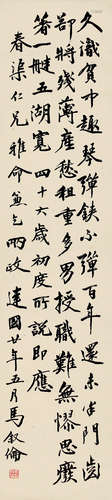 久識貧中趣琴彈鋏不彈百年還未半門齒
部將殘薄產愁租重多男授職難無憀思廢
箸一艇五湖寬四十六歲初度所說即應
春渠仁兄雅命並乞兩政 建國廿年五月馬叙倫